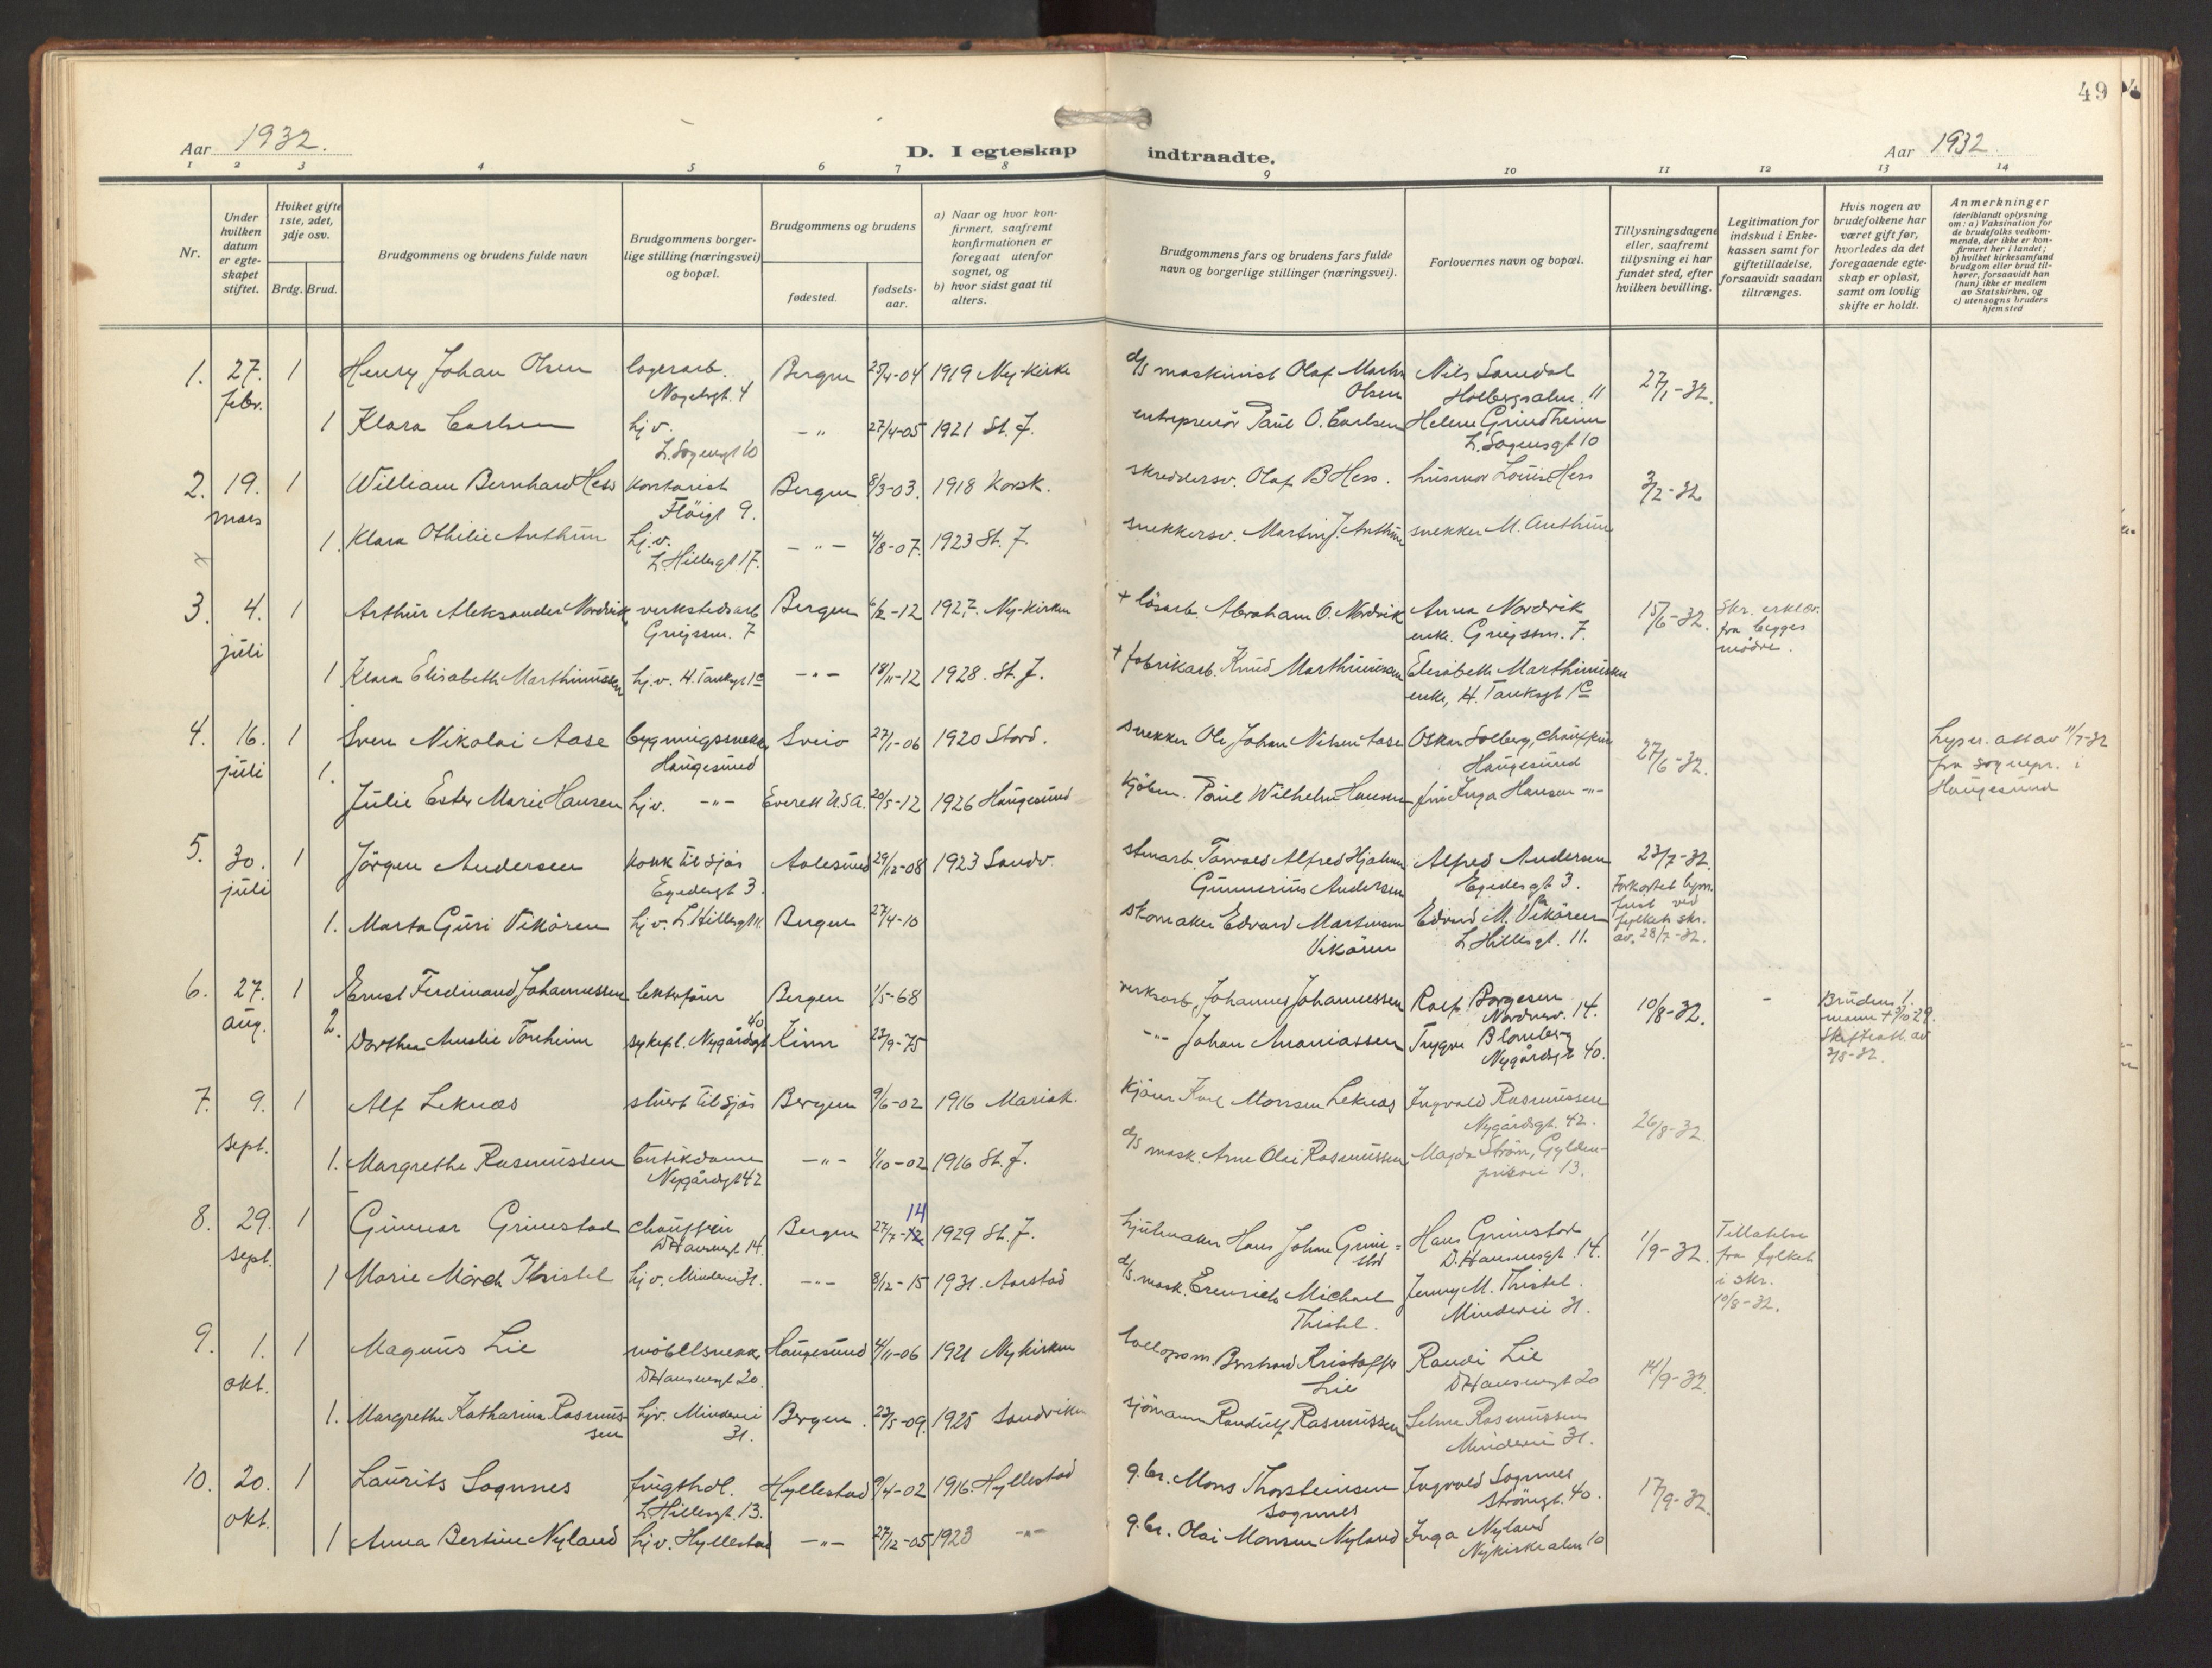 49
Aar 1932.
D. I egteskap indtraadte.
Aar 1932
1 2 3 4 5 6 7 8 9 10 11 12 13 14
Nr.
Under hvilken datum er egteskapet stiftet.
Hvilket gifte 1ste, 2det, 3dje osv.
Brdg. Brud.
Brudgommens og brudens fulde navn
Brudgommens borgerlige stilling (næringsvei) og bopæl.
Brudgommens og brudens
fødested.
fødselsaar.
a) Naar og hvor konfirmert, saafremt konfirmationen er foregaat utenfor sognet, og
b) hvor sidst gaat til alters.
Brudgommens fars og brudens fars fulde navn og borgerlige stillinger (næringsvei).
Forlovernes navn og bopæl.
Tillysningsdagene eller, saafremt tillysning ei har fundet sted, efter hvilken bevilling.
Legitimation for indskud i Enkekassen samt for giftetilladelse, forsaavidt saadan tiltrænges.
Hvis nogen av brudefolkene har været gift før, hvorledes da det foregaaende egteskap er opløst, samt om lovlig skifte er holdt.
Anmerkninger
(deriblandt oplysning om: a) Vaksination for de brudefolks vedkommende, der ikke er konfirmert her i landet; b) hvilket kirkesamfund brudgom eller brud tilhører, forsaavidt han (hun) ikke er medlem av Statskirken, og c) utensogns bruders hjemsted
1. 27. febr. 1 Henry Johan Olsen lagerarb. Nagelsgt. 4 Bergen 25/4-04 1919 Ny-kirke d/s maskinist Olaf Martin Olsen Nils Samdal Holbergsalm. 11 27/1-32.
1 Klara Carlsen hj v. L. Sagensgt 10 -"- 27/4-05 1921 St. J. entreprenör Paul O. Carlsen Helene Grindheim L. Sagensgt 10
2. 19. mars 1 William Bernhard Hess kontorist Flöigt 9. Bergen 8/3-03. 1918 Korsk. skreddersv. Olaf B Hess. husmor Louise Hess 3/2-32
1. Klara Othilie Anthun hj. v. L. Hillesgt 17. -"- 4/8-07. 1923 St. J. snekkersv. Martin J. Anthun snekker M. Anthun
3. 4. juli 1 Arthur Aleksander Nordvik verkstedsarb Griegssm. 7 Bergen 6/2-12 1927. Ny-kirken + lösarb. Abraham O. Nordvik Anna Nordvik enke. Griegssm. 7. 15/6-32. Skr. erklær. fra begges mödre.
1 Klara Elisabeth Marthinussen hj. v. H. Tanksgt 1c -"- 18/11-12 1928. St. J. + fabrikarb. Knud Marthinussen Elisabeth Marthinussen enke, H. Tanksgt 1c
4. 16. juli 1 Sven Nikolai Aase bygningssnekk. Haugesund Sveio 27/1-06 1920 Stord. snekker Ole Johan Nilsen Aase Oskar Solberg, chauffeur Haugesund 27/6-32. Lysn. att av 11/7-32 fra sognepr. i Haugesund
1. Julie Ester Marie Hansen hj v. -"- Everett U.S.A. 20/5-12 1926 Haugesund kjöbm. Paul Wilhelm Hansen fru Inga Hansen -"-
5. 30. juli 1 Jörgen Andersen kokk til sjös Egedesgt 3. Aalesund 29/12-08 1923 Sandv. stenarb. Torvald Alfred Hjalmar Gunnerius Andersen Alfred Andersen Egedesgt 3. 23/7-32. Forkortet lysn. frist ved fylkets skr. av. 28/7-32.
1. Marta Guri Vikören hj. v. L. Hillesgt 11. Bergen 27/4-10 skomaker Edvard Martinsen Vikören Edvard M. Vikören L. Hillesgt. 11.
6. 27. aug. 1 Ernst Ferdinand Johannessen lekterförer Bergen 1/5-68 verksarb. Johannes Johannessen Rolf Borgesen Nordnesv. 14. 10/8-32. - Brudens 1. mann + 9/10 29. Skifteatt. av 2/8-32.
2. Dorthea Amalie Torheim sykepl. Nygårdsgt 40 Kinn 23/9-75 -"- Johan Ananiassen Trygve Blomberg Nygårdsgt 40.
7. 9. sept. 1 Alf Leknes stuert til sjös Bergen 9/6-02 1916 Mariak. kjörer Karl Monsen Leknes Ingvald Rasmussen Nygårdsgt. 42. 26/8-32.
1. Margrethe Rasmussen butikdame Nygårdsgt 42 -"- 1/10-02 1916 St. J. d/s mask. Arne Olai Rasmussen Magda Ström, Gyldenprisvei 13.
8. 29. sept. 1 Gunnar Grimstad chauffeur D. Hansensgt 14. Bergen 27/7-12 14 1929 St. J. hjulmaker Hans Johan Grimstad Hans Grimstad D. Hansensgt. 14. 1/9-32. Tillatelse fra fylket i skr. 10/8-32.
1 Marie Mörch Thistel hj v. Mindevei 31. -"- 8/12-15 1931. Aarstad d/s. mask. Michael Thistel. Jenny M. Thistel. Mindevei 31.
9. 1. okt. 1 Magnus Lie möbelsnekk. D. Hansensgt 20. Haugesund 4/11-06 1921 Nykirken tollopsm. Bernhard Kristoffer Lie Randi Lie D. Hansensgt 20 14/9-32.
1. Margrethe Katharina Rasmussen hj v. Mindevei 31. Bergen. 23/5-09. 1925 Sandviken sjömann Randulf Rasmussen Selma Rasmussen Mindevei 31.
10. 20. okt. 1 Laurits Sognnes frugthdl. L. Hillesgt. 13. Hyllestad 9/4-02 1916 Hyllestad g.br. Mons Thorsteinsen Sognnes Ingvald Sognnes Strömgt. 40. 17/9-32.
1 Anna Bertine Nyland hj v. Hyllestad -"- 27/12-05 1920 -"- g.br. Olai Monsen Nyland Inga Nyland Nykirkealm 10